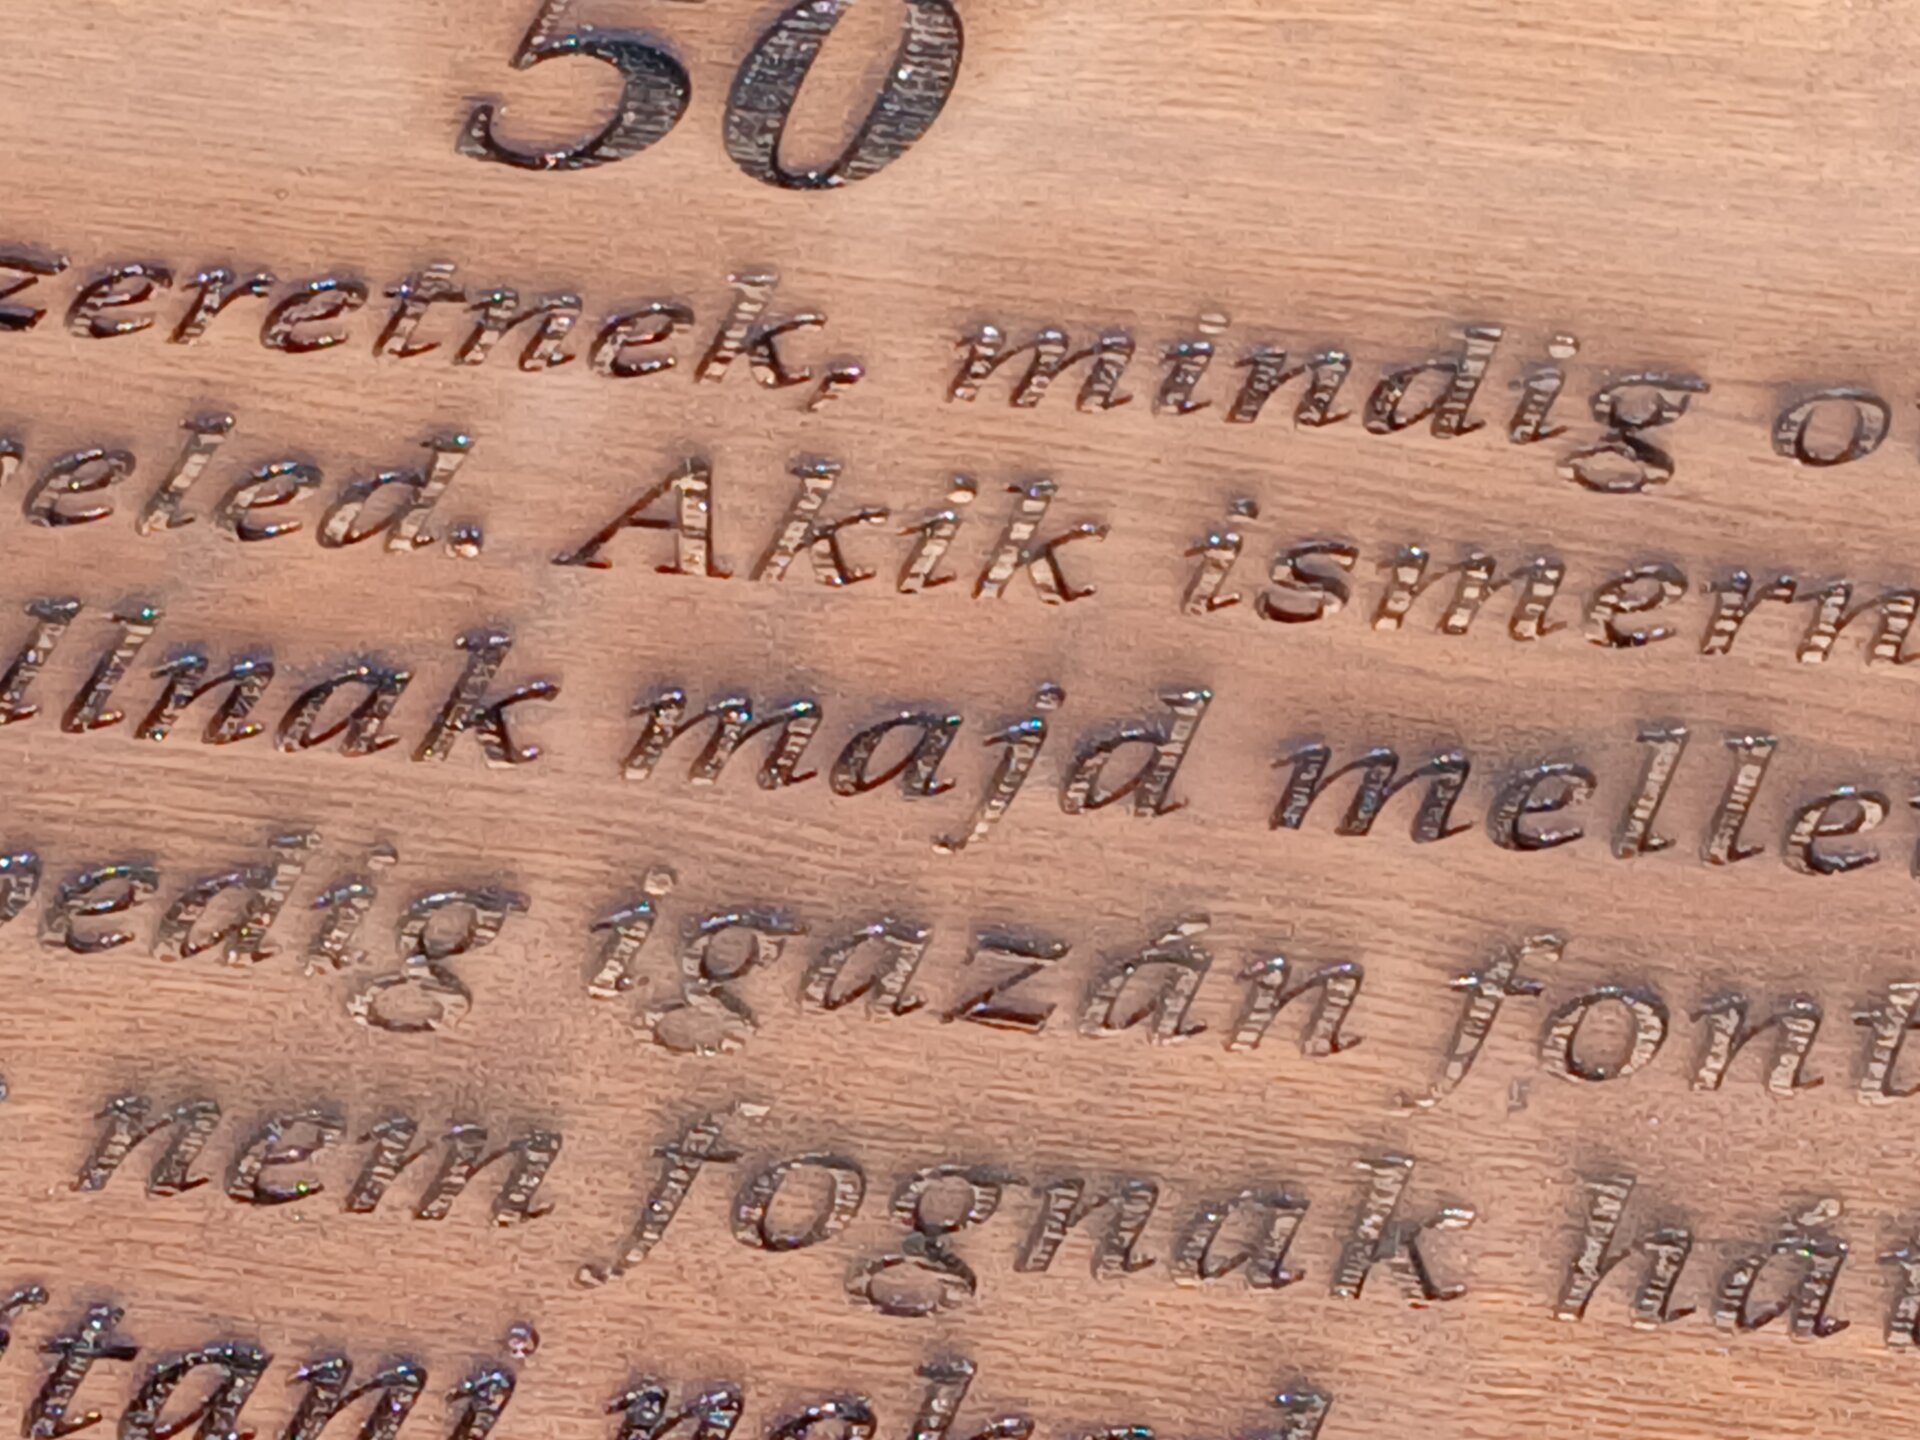 50
zeretnek, mindig o
veled. Akik ismern
llnak majd melle
pedig igazán font
nem fognak hát
ítani neked